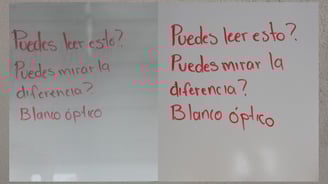 Puedes leer esto?
Puedes mirar la
diferencia?
Blanco óptico
Puedes leer esto?
Puedes mirar la
diferencia?
Blanco óptico